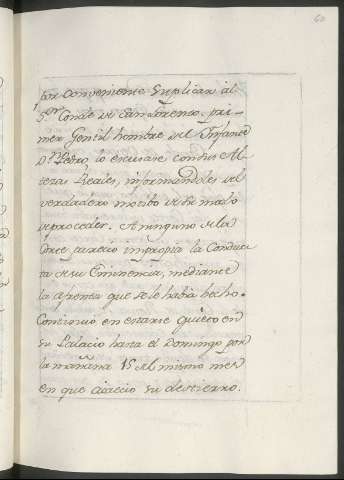 60
por conveniente suplicar al
S.or Conde de San Lorenzo, pri-
mer Gentil hombre del Infante
D.n Pedro, lo escusase con sus Al-
tezas Reales, informandoles del
verdadero motibo de su modo
de proceder. A ninguno de la
Corte parecio impropia la Conduc-
ta de su Eminencia, mediante
la afrenta que se le habia hecho.
Continuó en estarse quieto en
su Palacio hasta el Domingo por
la mañana 15 del mismo mes
en que acaecio su destierro.